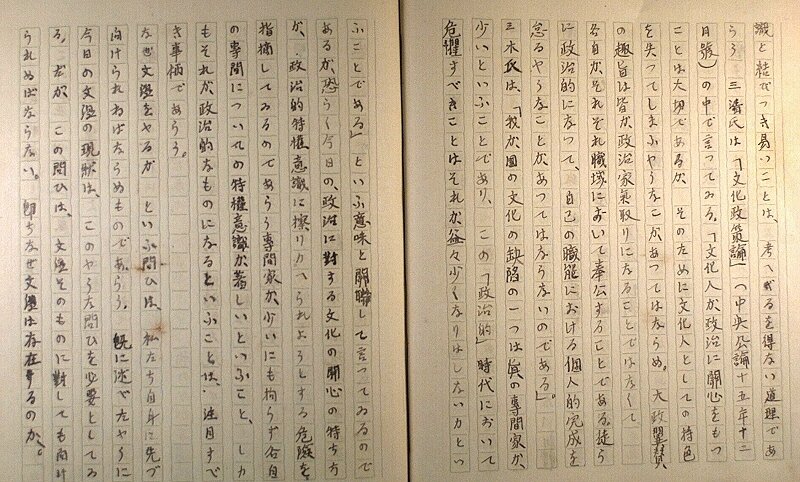 識と結びつき易いことは、考へざるを得ない道理であ
らう。三木清氏は「文化政策論」(中央公論十五年十二
月號)の中で言つてゐる。「文化人が政治に關心をもつ
ことは大切であるが、そのために文化人としての特色
を失つてしまふやうなことがあつてはならぬ。大政翼賛
の趣旨は皆が政治家氣取りになることではなくて
各自がそれぞれ職域において奉公することである。徒ら
に政治的になつて、自己の職能における個人的完成を
怠るやうなことがあつてはならないのである」。
三木氏は、「我が國の文化の缺陷の一つは眞の專門家が、
少いといふことであり、この「政治的」時代において
危懼すべきことはそれが益々少くなりはしないかとい
ふことである」といふ意味と關聯して言つてゐるので
あるが、恐らく今日の、政治に對する文化の關心の持ち方
が、政治的特權意識に擦りかへられようとする危險を
指摘してゐるのであらう。專門家が、少いにも拘らず各自
の專門についての特權意識が著しいといふこと、しか
もそれが政治的なものになるといふことは、注目すべ
き事柄であらう。
なぜ文學をやるか、といふ問ひは、私たち自身に先づ
向けられねばならぬものであらう。既に述べたやうに
今日の文學の現狀は、このやうな問ひを必要としてゐ
る。だが、この問ひは、文學そのものに對しても向け
られねばならない。卽ちなぜ文學は存在するのか。